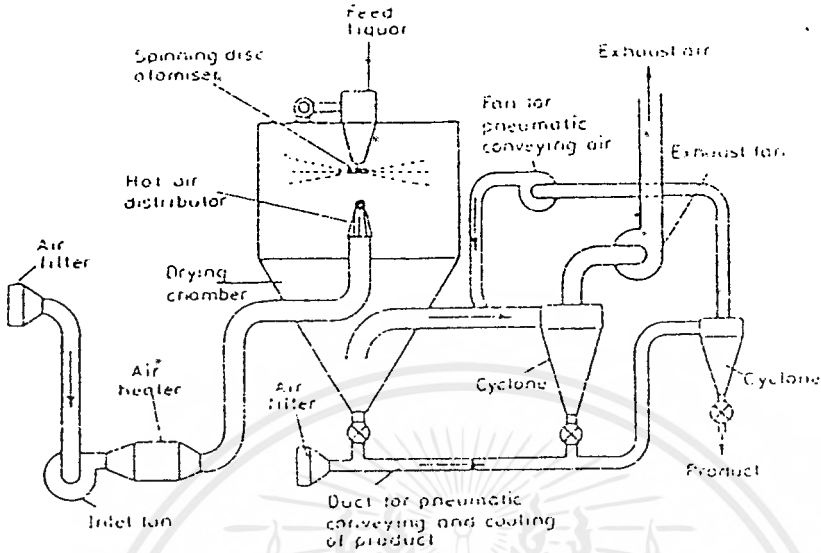 Feed
liquor
Spinning disc
atomiser
Exhaust air
Fan for
pneumatic
conveying air
Exhaust fan
Hot air
distributor
Air
filter
Drying
chamber
Air
heater
Cyclone
Air
filter
Cyclone
Product
Inlet fan
Duct for pneumatic
conveying and cooling
of product